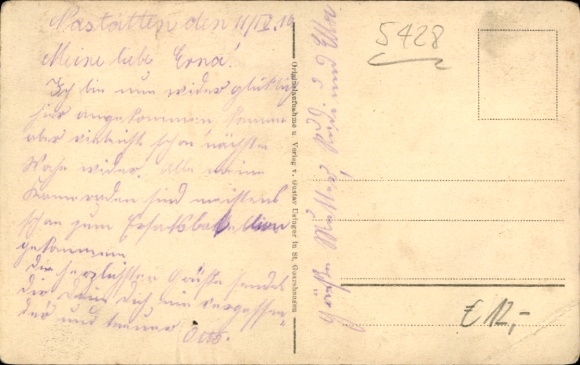 Nastätten den 11/IV.16
Meine liebe Erna!
Ich bin nun wider glücklich
hier angekommen komme
aber vieleicht schon nächste
Woche wider. Alle meine
Kameraden sind meistens
schon zum Ersatzbatallion
gekommen
Die herzlichsten Grüße sendet
dir dein dich nie vergessen-
der und treuer
Otto.
Originalaufnahme u. Verlag v. Gustav in St. Goarshausen
Gruß
und
5428
€ 12,-